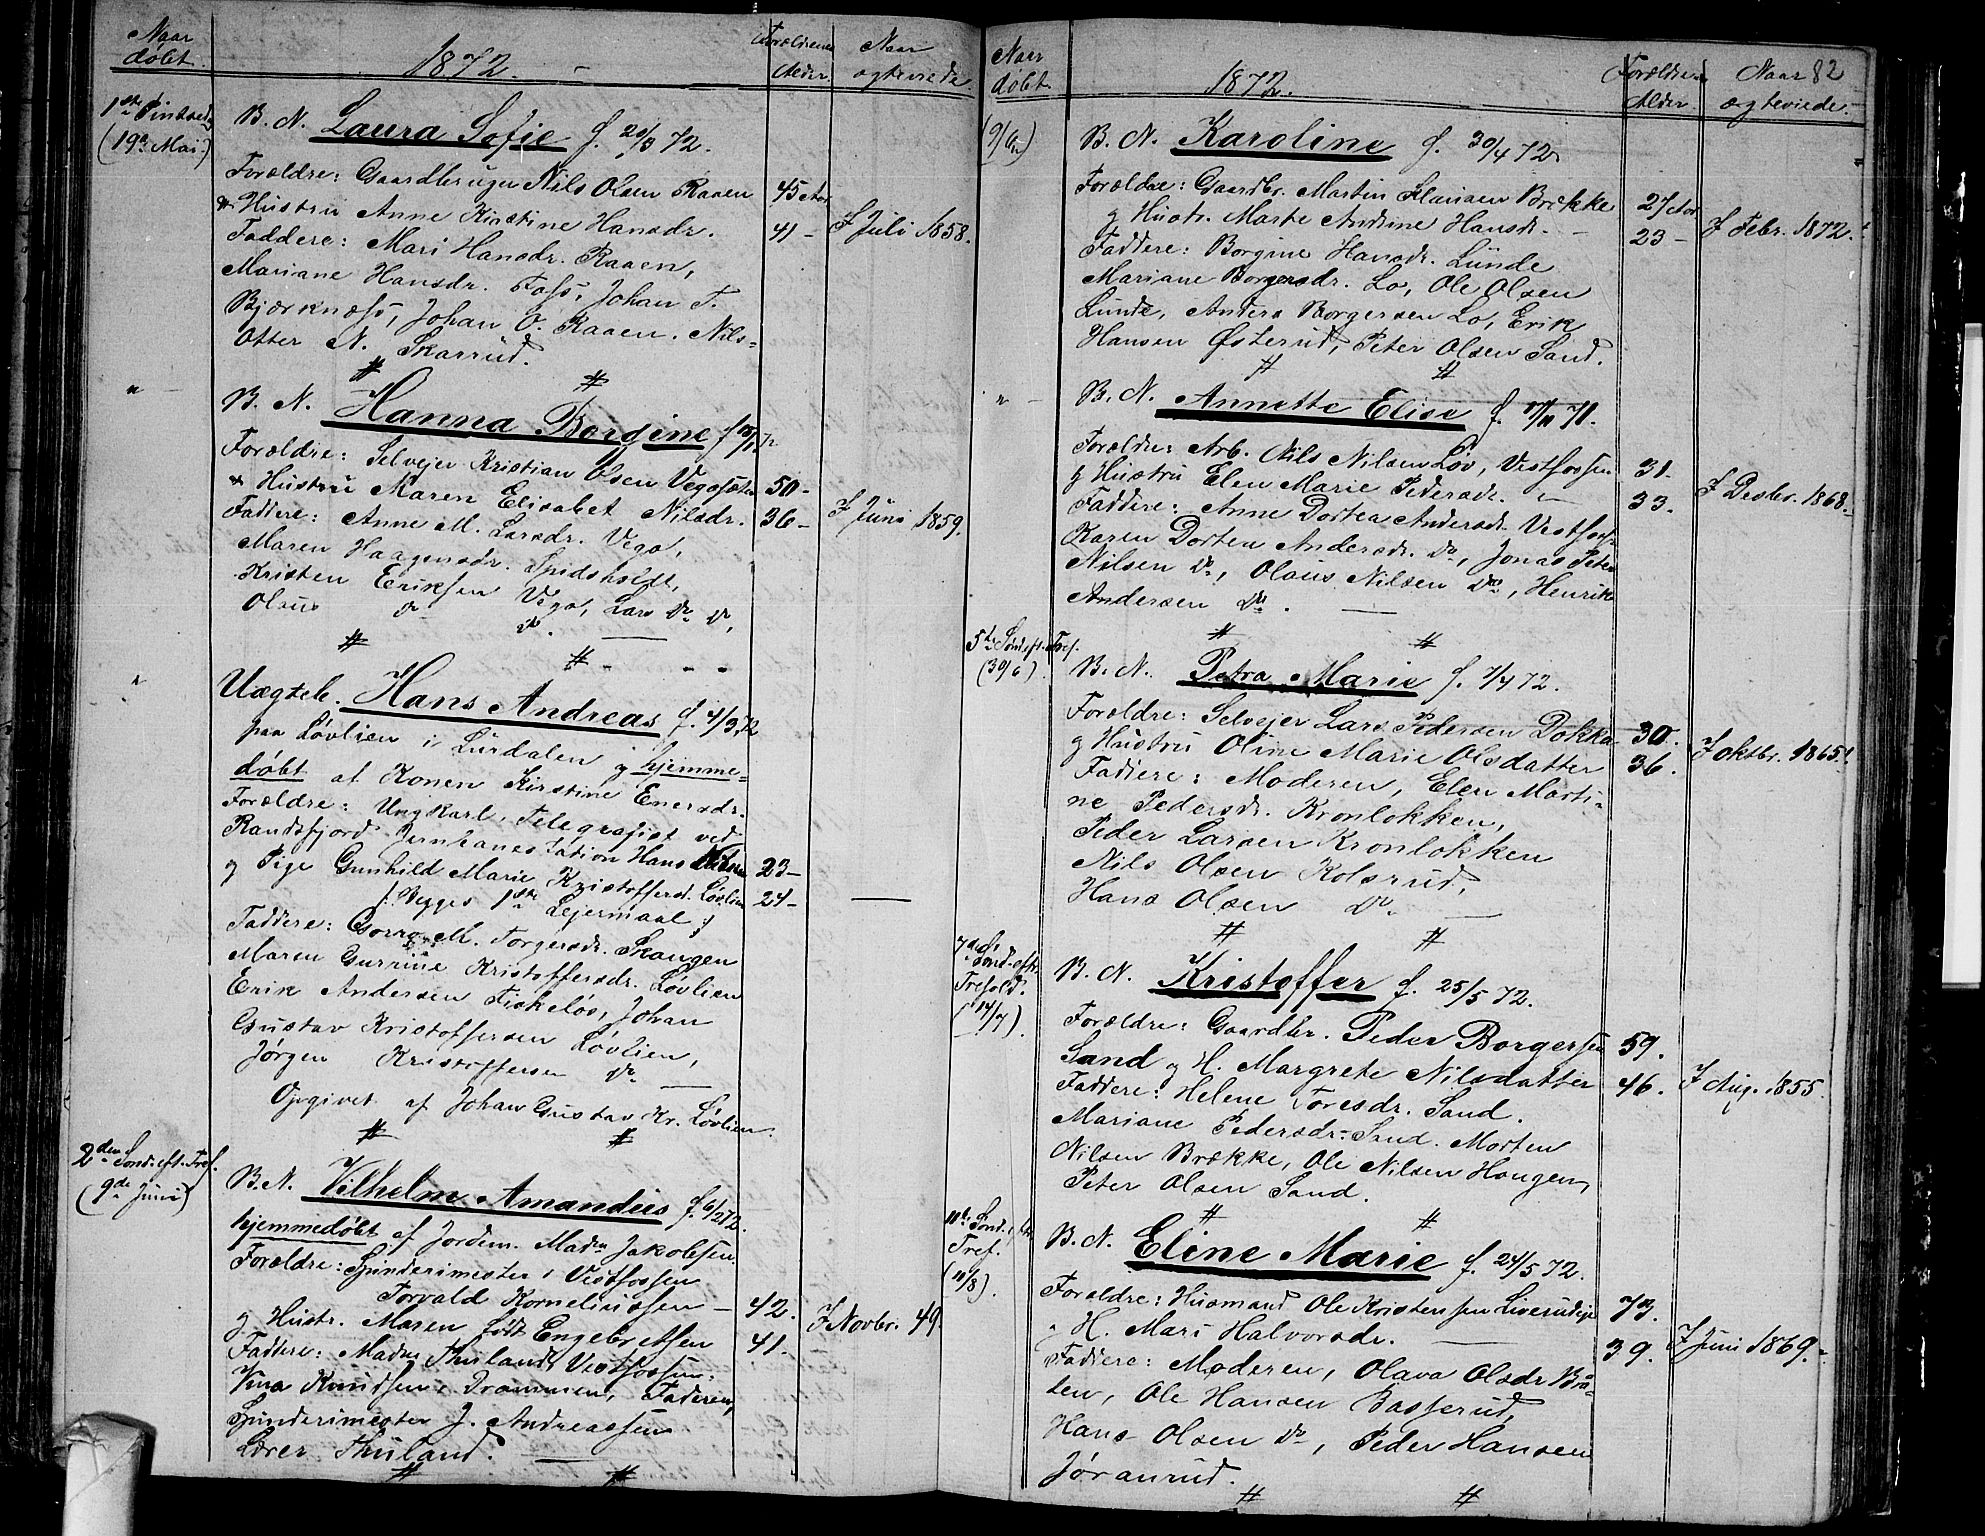 Naar døbt.
1872. -
Forældrenes Alder.
Naar ægteviede.
1ste Pintsed.
(19de Mai.)
B. N. Laura Sofie f. 20/3 72.
Forældre: Gaardbruger Nils Olsen Raaen 45 Aar
& Hustru Anne Kirstine Hansdr. 41 - I Juli 1858.
Faddere: Mari Hansdr. Raaen,
Mariane Hansdr. Foss, Johan T.
Bjærknæss, Johan O. Raaen. Nils=
Otter N. Skarrud.
# #
" -
B. N. Hanna Borgine f.
Forældre: Selvejer Kristian Olsen Vego 50-
& Hustru Maren Elisabet Nilsdr. 36- I Juni 1859.
Faddere: Anne M. Larsdr. Vego,
Maren Haagensdr. Spidsholdt,
Kristen Eriksen Vego, Lars do do,
Olaus do do.
# #
"
Uægteb. Hans Andreas f. 4/3 72
paa Løvlien i Lurdalen & hjemme=
døbt af Konen Kirstine Enersdr.
Forældre: Ungkarl, Telegrafist ved
Randsfjord Jernbanestation Hans 23-
& Pige Gunhild Marie Kristoffersd. Løvlien 24- —
/: Begges 1ste Lejermaal :/
Faddere: M. Torgersdr. Skaugen
Maren Gurrine Kristoffersdr. Løvlien
Erik Andersen Fiskeløs, Johan
Gustav Kristoffersen Løvlien,
Jørgen Kristoffersen do —
Opgivet af Johan Gustav Kr. Løvlien.
# #
2den Sønd. eft. Tref.
(9de Juni)
B. N. Vilhelm Amandus f. 6/2 72.
hjemmedøbt af Jordem. Madm Jakobsen.
Forældre: Spinderimester i Vestfossen
Torvald Korneliussen — 42.
& Hustr. Maren født Engebretsen 41. I Novbr. 49.
Faddere: Madm Thuland, Vestfossen,
Knudsen, Drammen, Faderen,
Spinderimester J. Andreassen
Lærer Thuland. —
# #
Naar døbt.
1872.
Forældres Alder.
Naar ægteviede.
82
(9/6)
B. N. Karoline f. 30/4 72
Forældre: Gaardbr. Martin Hansen Brække 27 Aar
& Hustr. Marte Andrine Hansdr. - 23 - I Febr. 1872.
Faddere: Borgine Hansdr. Lunde
Mariane Borgersdr. Lo, Ole Olsen
Lunde, Anders Borgersen Lo, Erik
Hansen Østerud, Peter Olsen Sand.
# #
" -
B. N. Annette Elise f. 17/11 71.
Forældre: Arb. Nils Nilsen Lov, Vestfossen 31.
& Hustru Elen Marie Pedersdr. - 33. I Desbr. 1868.
Faddere: Anne Dortea Andersdr. Vestfoss.
Karen Dortea Andersdr. do, Jonas Peter
Nilsen do, Olaus Nilsen do, Henrik
Andersen do. —
# #
5te Sønd. eft. Tref.
(30/6)
B. N. Petra Marie f. 7/4 72.
Forældre: Selvejer Lars Pedersen Dokka 30.
& Hustru Oline Marie Olsdatter 36. I Oktbr. 1865.
Faddere: Moderen, Elen Marti=
ne Pedersdr. Kronlokken,
Peder Larsen Kronlokken
Nils Olsen Kolsrud,
Hans Olsen do. —
# #
7de Sønd. eft. Trefold.
(14/7).
B. N. Kristoffer f. 25/5 72.
Forældre: Gaardbr. Peder Borgersen 59.
Sand & H. Margrete Nilsdatter 46. I Aug. 1855.
Faddere: Helene Toresdr. Sand.
Mariane Pedersdr. Sand. Morten
Nilsen Brække, Ole Nilsen Haugen,
Peter Olsen Sand.
# #
11te Sønd. eft.
Tref.
(11/8).
B. N. Eline Marie f. 24/5 72.
Forældre: Husmand Ole Kristensen Liverudeje 73.
& H. Mari Halvorsdr. — 39. I Juni 1869.
Faddere: Moderen, Olava Olsdr Brå=
ten, Ole Hansen Basserud,
Hans Olsen do, Peder Hansen
Jøranrud.
# #